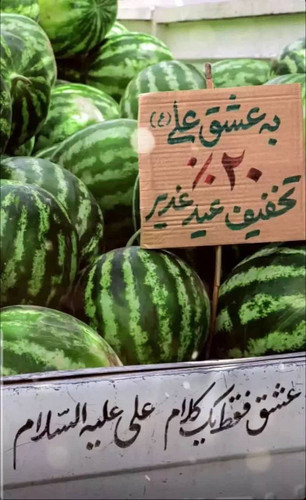 به عشق علی (ع)
۲۰٪
تخفیف عید غدیر
عشق فقط یک کلام علی علیه السّلام